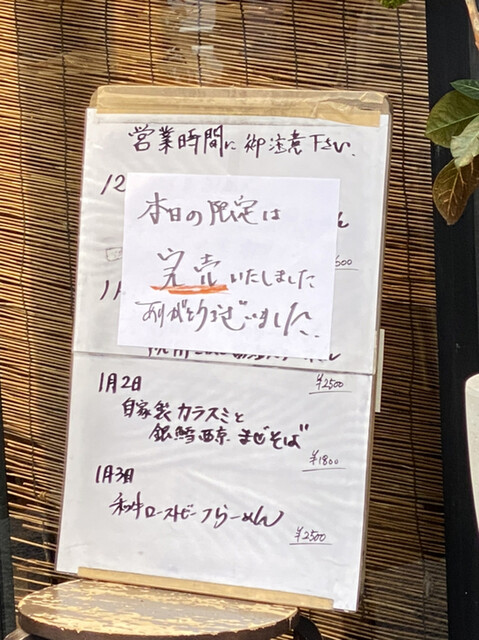 営業時間に御注意下さい.
12
ん
本日の限定は
完売いたしました
ありがとうございました.
¥2500
1月2日
自家製カラスミと
銀鱈西京まぜそば
¥1800
1月3日
和牛ローストビーフらーめん
¥2500